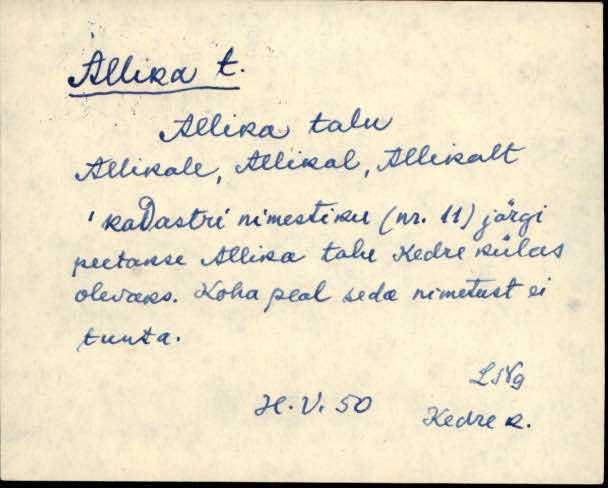 Allika t.
Allika talu
Allikale, Allikal, Allikalt
'kaDastri nimestiku (nr. 11) järgi
peetakse Allika talu Kedre külas
olevaks. Koha peal seda nimetust ei
tunta.
LNg
H. V. 50
Kedre k.